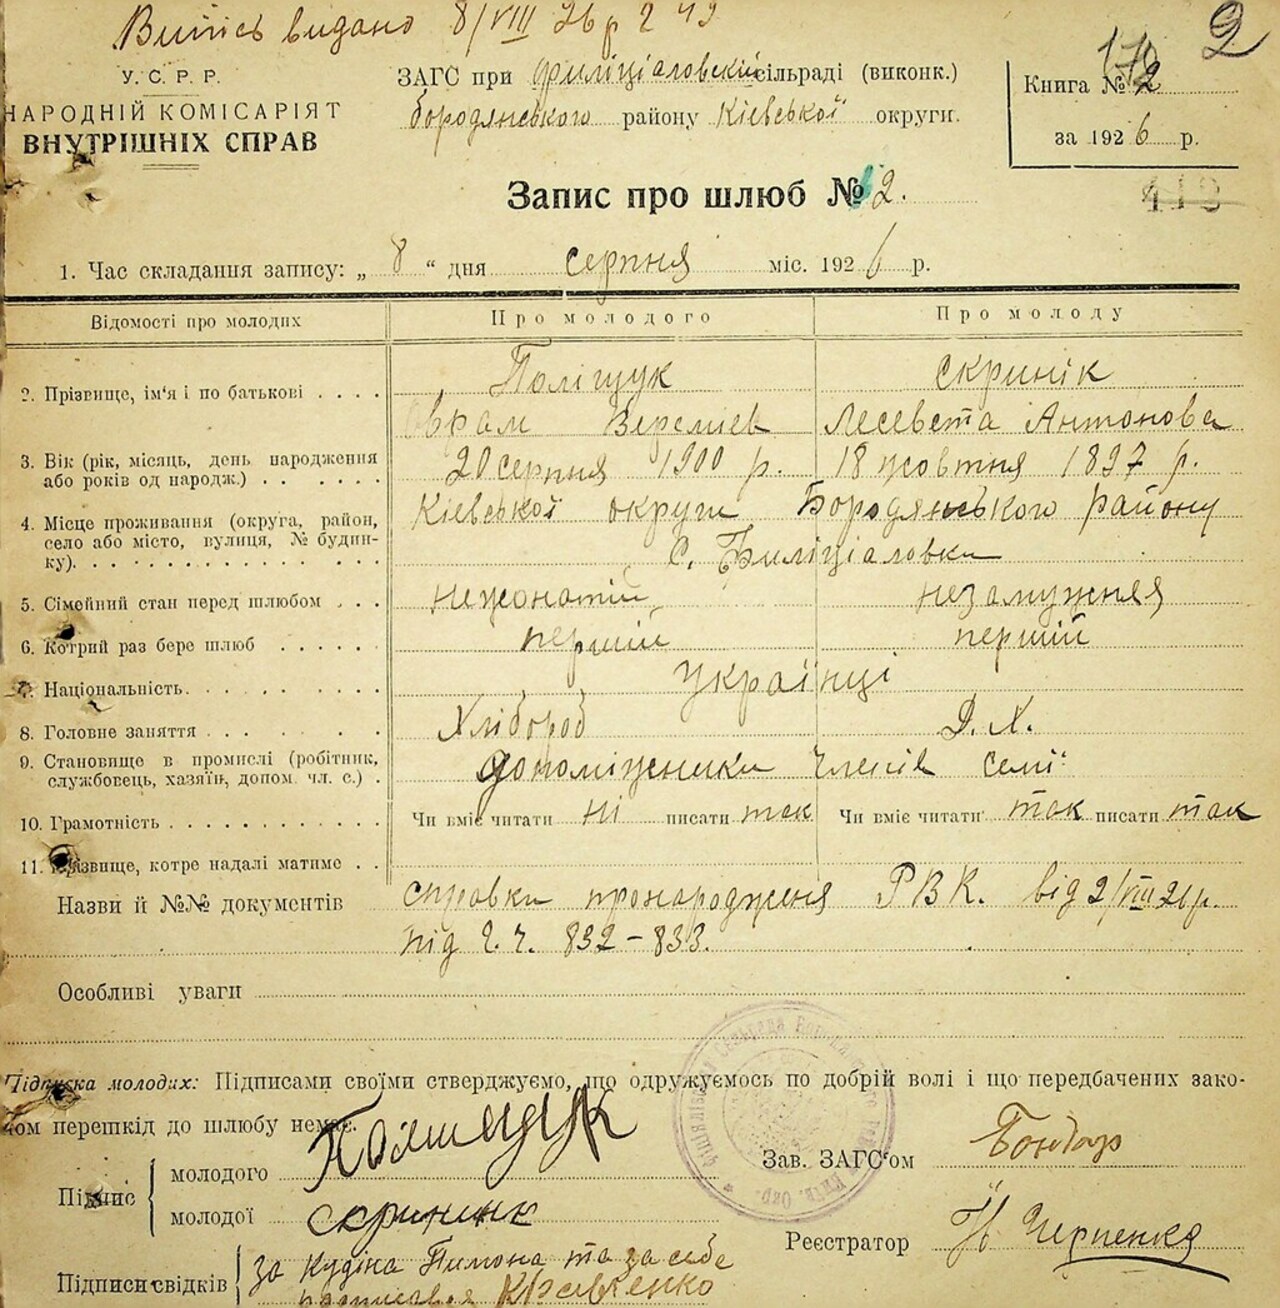 Випісь видано 8/VIII 26 р 2 43
2
У. С. Р. Р.
НАРОДНІЙ КОМІСАРІЯТ
ВНУТРІШНІХ СПРАВ
ЗАГС при сільраді (виконк.)
бородянського району Кіевської округи.
Книга № 2
за 1926 р.
Запис про шлюб № 2.
413
1. Час складання запису: „ 8 “ дня серпня міс. 1926 р.
Відомості про молодих
Про молодого
Про молоду
2. Прізвище, ім'я і по батькові . . . .
Поліщук
скринік
Оврам Веремієв
Лесевета Антонова
3. Вік (рік, місяць, день народження або років од народж.) . . . . . .
20 серпня 1900 р.
18 жовтня 1897 р.
4. Місце проживання (округа, район, село або місто, вулиця, № будинку). . . . . . . . . . . . . . .
Кіевської округи Бородянського району
С.
5. Сімейний стан перед шлюбом . . .
нежонатій
незамужняя
6. Котрий раз бере шлюб . . . . .
первій
первій
7. Національність. . . . . . . . .
Українці
8. Головне заняття . . . . . . . .
Хлібороб
Д. Х.
9. Становище в промислі (робітник, службовець, хазяїн, допом. чл. с.) .
допоміжники членів семї
10. Грамотність . . . . . . . . . .
Чи вміє читати ні писати так
Чи вміє читати так писати так
11. Прізвище, котре надалі матиме . .
Назви й №№ документів
справки пронародженя РВК. від 2/VIII 26р.
під г. ч. 832-833.
Особливі уваги
Підписка молодих: Підписами своїми стверджуємо, що одружуємось по добрій волі і що передбачених зако-
ном перешкід до шлюбу немає.
Підпис
молодого
молодої скриник
Зав. ЗАГС'ом Бондар
Реєстратор Черненко
Підписи свідків
за Кудіна Пимона та за себе
подписався Кравченко